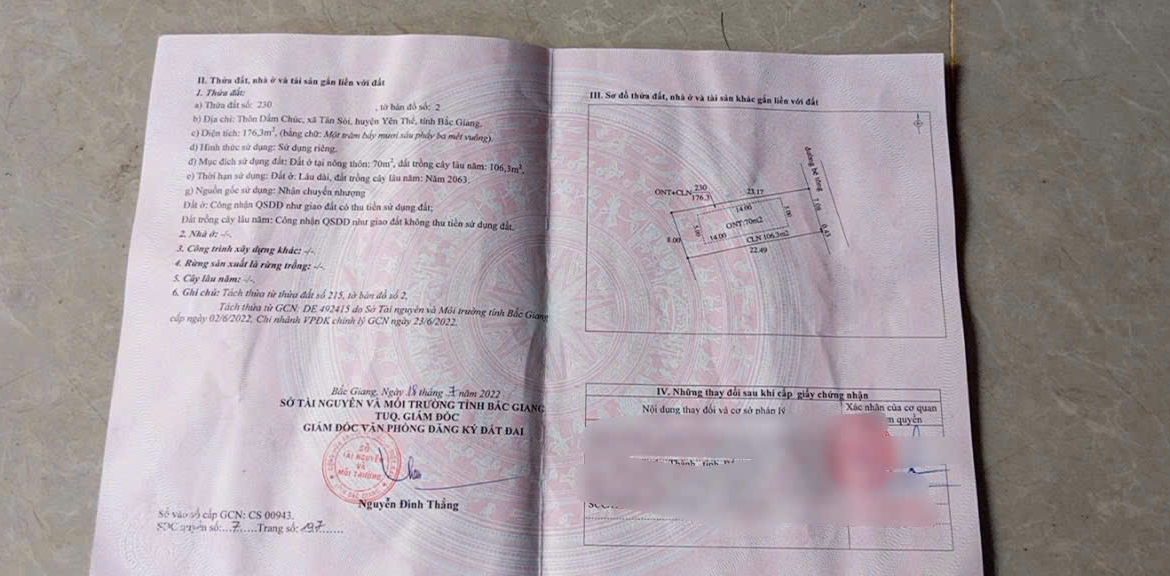 II. Thửa đất, nhà ở và tài sản gắn liền với đất
1. Thửa đất:
a) Thửa đất số: 230 , tờ bản đồ số: 2
b) Địa chỉ: Thôn Dầm Chúc, xã Tân Sỏi, huyện Yên Thế, tỉnh Bắc Giang.
c) Diện tích: 176,3m², (bằng chữ: Một trăm bảy mươi sáu phảy ba mét vuông).
d) Hình thức sử dụng: Sử dụng riêng.
đ) Mục đích sử dụng đất: Đất ở tại nông thôn: 70m², đất trồng cây lâu năm: 106,3m².
e) Thời hạn sử dụng: Đất ở: Lâu dài, đất trồng cây lâu năm: Năm 2063.
g) Nguồn gốc sử dụng: Nhận chuyển nhượng
Đất ở: Công nhận QSDĐ như giao đất có thu tiền sử dụng đất;
Đất trồng cây lâu năm: Công nhận QSDĐ như giao đất không thu tiền sử dụng đất.
2. Nhà ở: -/-.
3. Công trình xây dựng khác: -/-.
4. Rừng sản xuất là rừng trồng: -/-.
5. Cây lâu năm: -/-.
6. Ghi chú: Tách thửa từ thửa đất số 215, tờ bản đồ số 2.
Tách thửa từ GCN: DE 492415 do Sở Tài nguyên và Môi trường tỉnh Bắc Giang
cấp ngày 02/6/2022, Chi nhánh VPĐK chỉnh lý GCN ngày 23/6/2022.
Bắc Giang, Ngày 18 tháng 7 năm 2022
SỞ TÀI NGUYÊN VÀ MÔI TRƯỜNG TỈNH BẮC GIANG
TUQ. GIÁM ĐỐC
GIÁM ĐỐC VĂN PHÒNG ĐĂNG KÝ ĐẤT ĐAI
SỞ
TÀI NGUYÊN
VÀ
MÔI TRƯỜNG
Nguyễn Đình Thắng
Số vào sổ cấp GCN: CS 00943.
SĐC quyển số:...7.....Trang số: 197......
III. Sơ đồ thửa đất, nhà ở và tài sản khác gắn liền với đất
ONT+CLN 230
176.3
23.17
đường bê tông
7.08
0.43
14.00
5.00
ONT:70m2
5.00
14.00
CLN 106.3m2
8.00
22.49
IV. Những thay đổi sau khi cấp giấy chứng nhận
Nội dung thay đổi và cơ sở pháp lý
Xác nhận của cơ quan
quyền